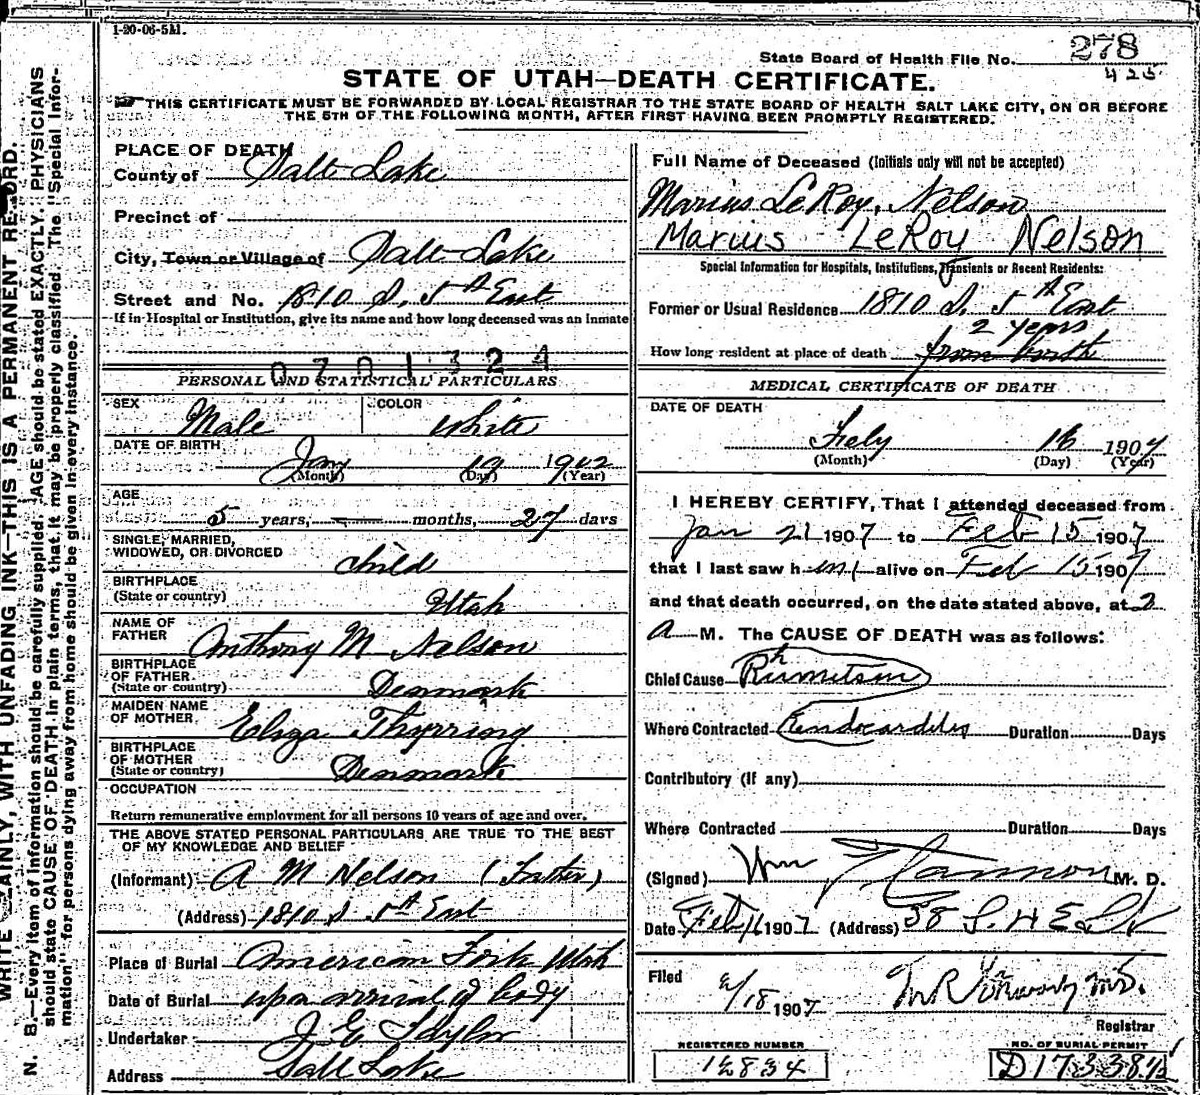 1-20-06-5M.
State Board of Health File No. 278
425
STATE OF UTAH—DEATH CERTIFICATE.
THIS CERTIFICATE MUST BE FORWARDED BY LOCAL REGISTRAR TO THE STATE BOARD OF HEALTH SALT LAKE CITY, ON OR BEFORE
THE 5TH OF THE FOLLOWING MONTH, AFTER FIRST HAVING BEEN PROMPTLY REGISTERED.
WRITE PLAINLY, WITH UNFADING INK—THIS IS A PERMANENT RECORD.
N. B.—Every item of information should be carefully supplied. AGE should be stated EXACTLY. PHYSICIANS
should state CAUSE OF DEATH in plain terms, that it may be properly classified. The "Special Infor-
mation" for persons dying away from home should be given in every instance.
PLACE OF DEATH
County of Salt Lake
Precinct of
City, Town or Village of Salt Lake
Street and No. 1810 S. 5th East
If in Hospital or Institution, give its name and how long deceased was an inmate
0701324
PERSONAL AND STATISTICAL PARTICULARS
SEX Male COLOR White
DATE OF BIRTH
Jany 19 1902
(Month) (Day) (Year)
AGE
5 years, — months, 27 days
SINGLE, MARRIED,
WIDOWED, OR DIVORCED child
BIRTHPLACE
(State or country) Utah
NAME OF
FATHER Anthony M Nelson
BIRTHPLACE
OF FATHER
(State or country) Denmark
MAIDEN NAME
OF MOTHER Eliza Thyrring
BIRTHPLACE
OF MOTHER
(State or country) Denmark
OCCUPATION
Return remunerative employment for all persons 10 years of age and over.
THE ABOVE STATED PERSONAL PARTICULARS ARE TRUE TO THE BEST
OF MY KNOWLEDGE AND BELIEF
(Informant) A M Nelson (Father)
(Address) 1810 S 5th East
Place of Burial American Fork Utah
Date of Burial upon arrival of body
Undertaker J E Taylor
Address Salt Lake
Full Name of Deceased (Initials only will not be accepted)
Marius LeRoy Nelson
Marius LeRoy Nelson
Special Information for Hospitals, Institutions, Transients or Recent Residents:
Former or Usual Residence 1810 S. 5th East
2 years
How long resident at place of death from birth
MEDICAL CERTIFICATE OF DEATH
DATE OF DEATH
Feby 16 1907
(Month) (Day) (Year)
I HEREBY CERTIFY, That I attended deceased from
Jan 21 1907 to Feb 15 1907
that I last saw him alive on Feb 15 1907
and that death occurred, on the date stated above, at 2
A M. The CAUSE OF DEATH was as follows:
Chief Cause
Where Contracted Endocarditis Duration Days
Contributory (If any)
Where Contracted Duration Days
(Signed) Wm T Cannon M. D.
Date Feb 16 1907 (Address) 58 S. 4 E St
Filed 2/18 1907
Registrar
REGISTERED NUMBER
12834
NO. OF BURIAL PERMIT
D17338½